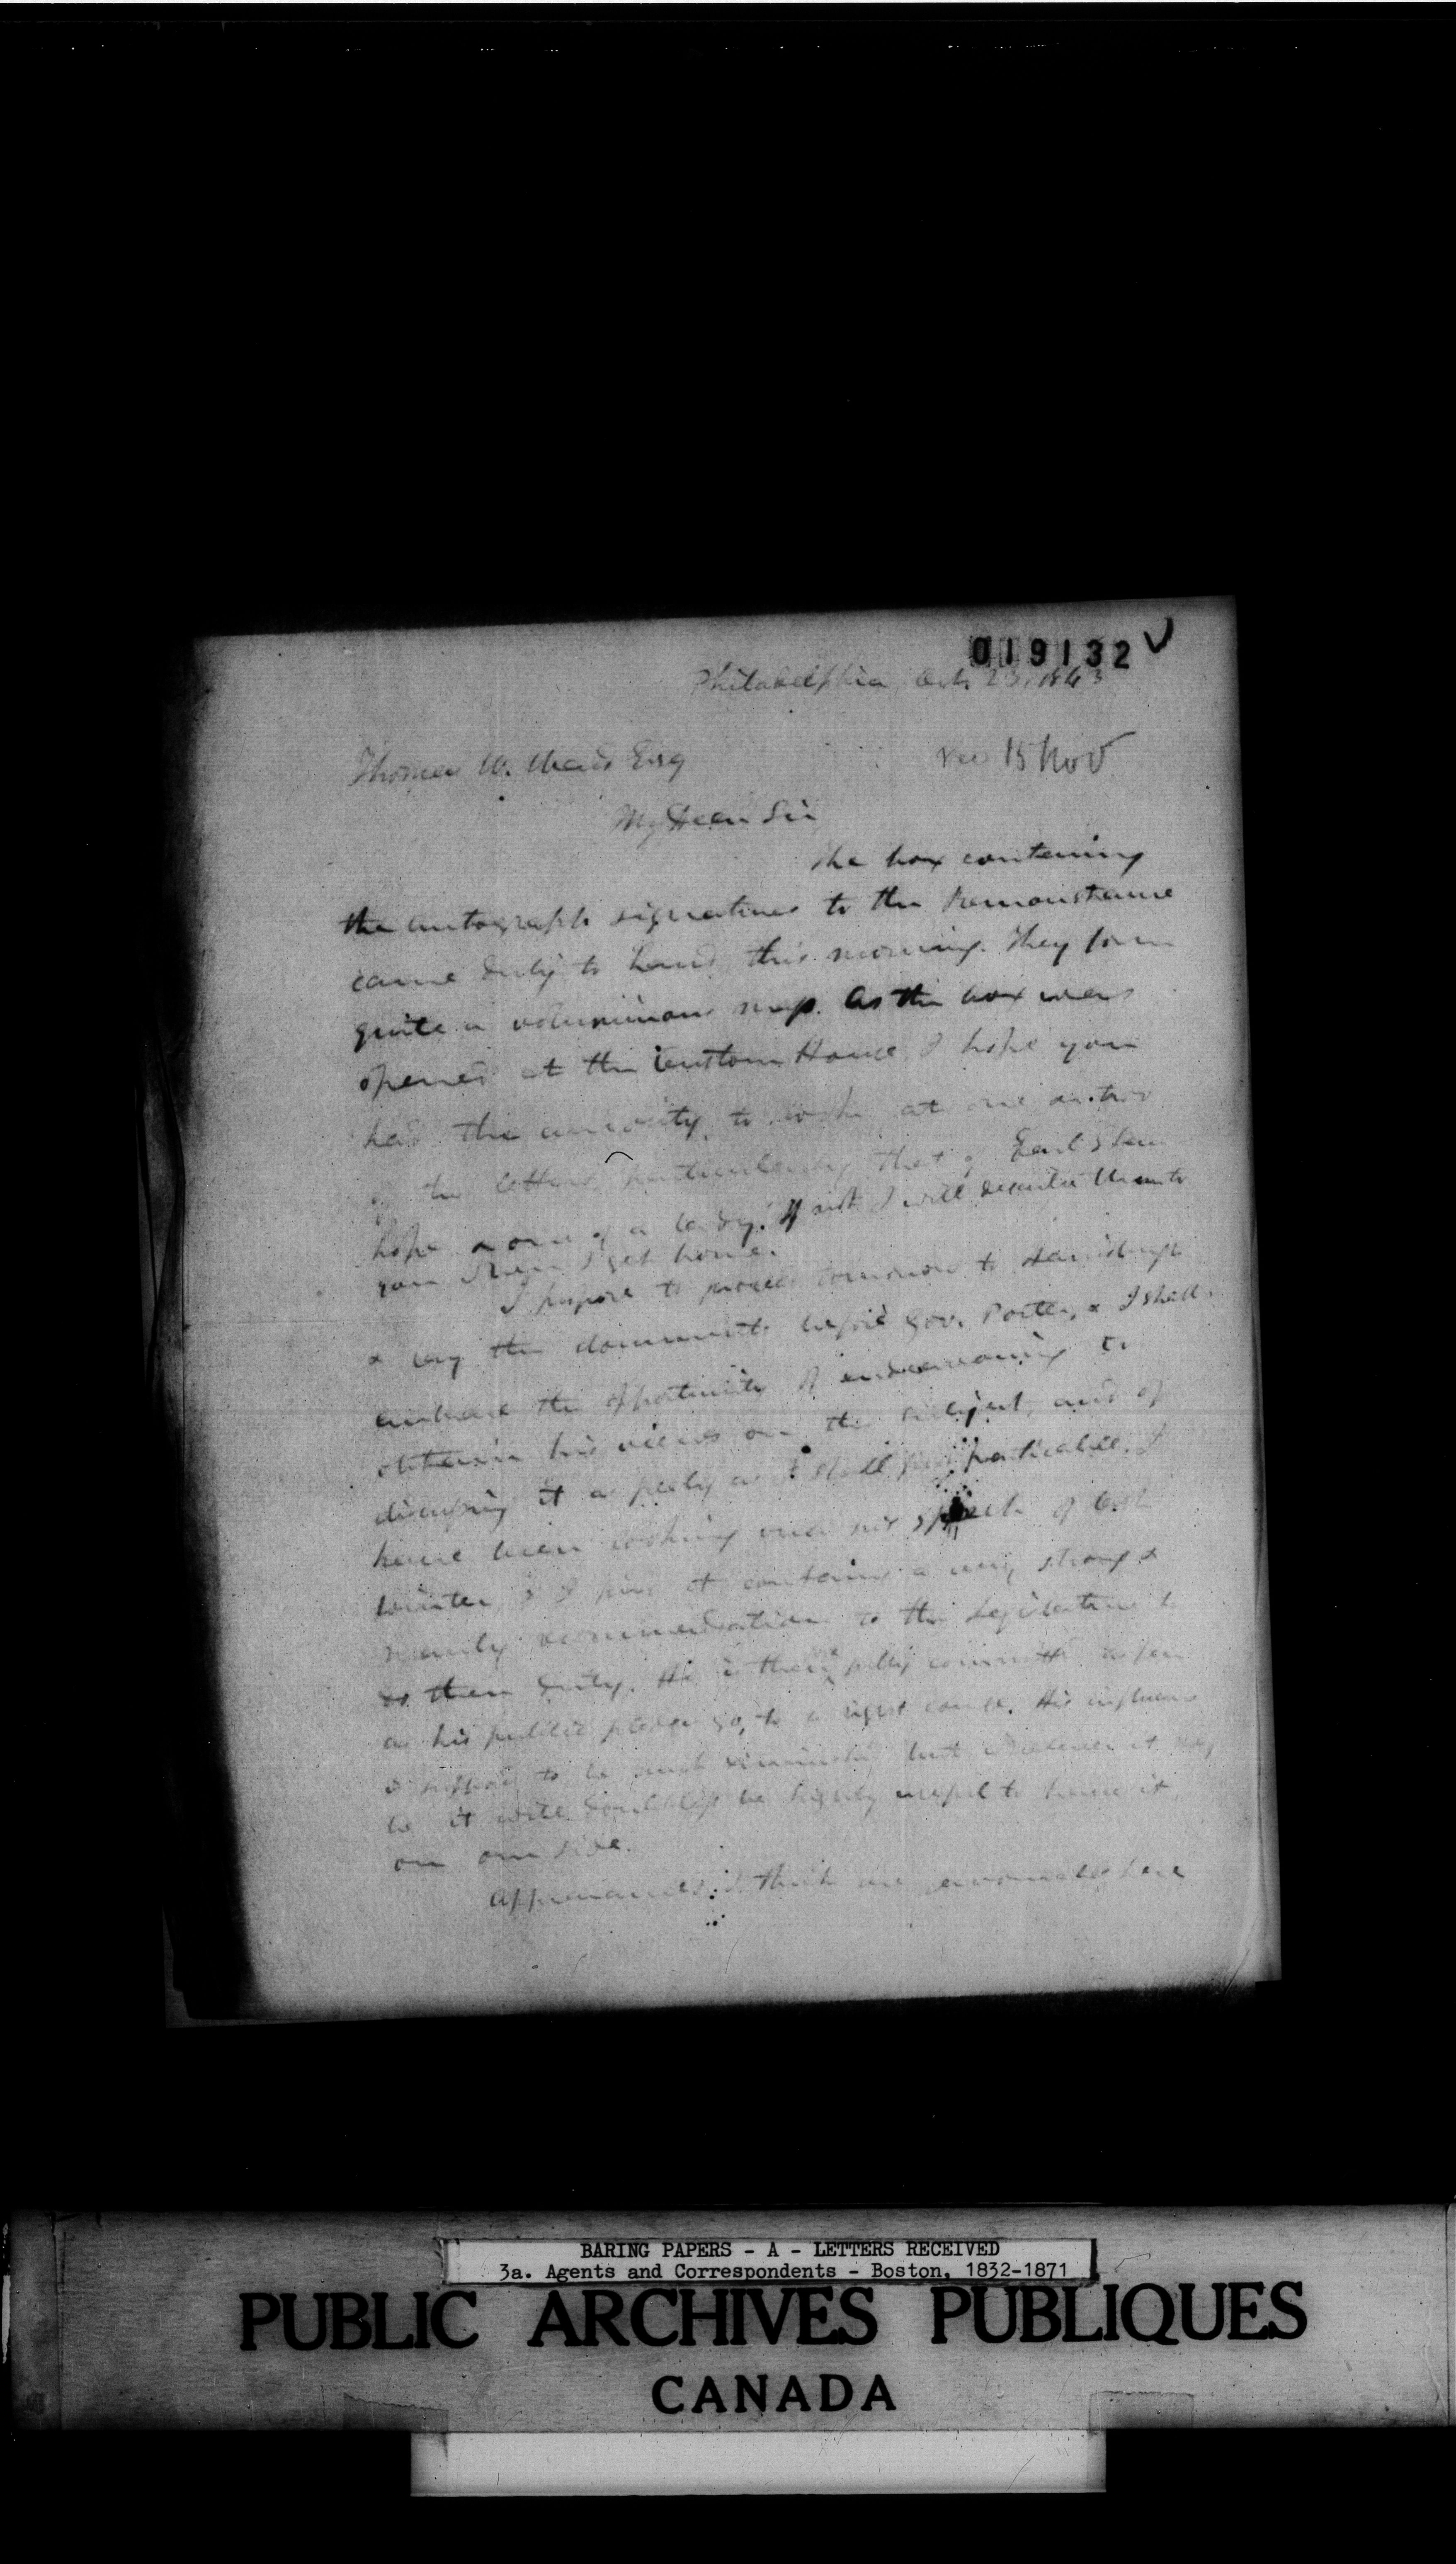 019132
Philadelphia, Oct. 23, 1843
Thomas W. Ward Esq
rec 15 Nov
My Dear Sir
The box containing
the autograph signatures to the Remonstrance
came duly to hand this morning. They form
quite a voluminous map. As the box was
opened at the Custom House I hope you
had the curiosity to look at one or two
of the letters particularly that of Earl Stan
hope & one of a lady. If not I will describe them to
you when I get home.
I propose to proceed tomorrow to Harrisburgh
& lay the documents before Gov. Porter, & I shall
embrace the opportunity of endeavouring to
obtain his views on the subject, and of
discussing it as freely as I shall find practicable. I
have been looking over his speech of last
winter, & I find it contains a very strong &
manly recommendation to the Legislature to
do their duty. He is therefore fully committed as far
as his public pledge go, to a right course. His influence
I suppose to be much diminished, but whatever it may
be it will doubtless be highly useful to have it
on our side.
Appearances I think are favourable here
BARING PAPERS - A - LETTERS RECEIVED
3a. Agents and Correspondents - Boston, 1832-1871
PUBLIC ARCHIVES PUBLIQUES
CANADA